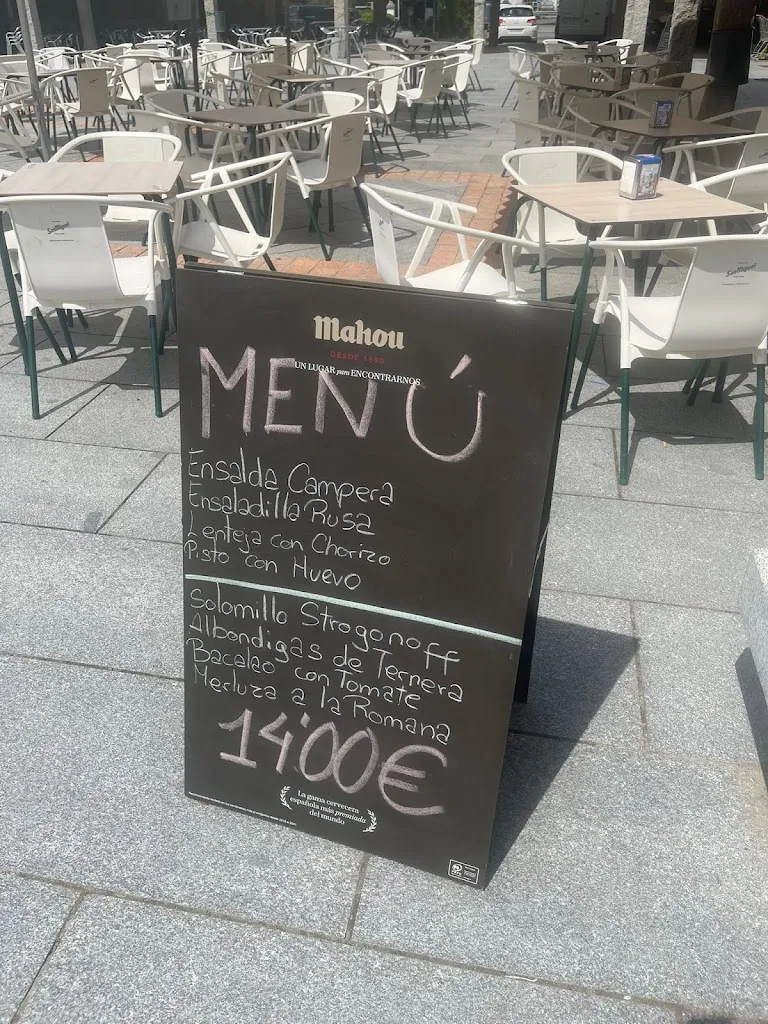 Mahou
DESDE 1890
UN LUGAR para ENCONTRARNOS
MENÚ
Ensalda Campera
Ensaladilla Rusa
Lenteja con Chorizo
Pisto con Huevo
Solomillo Strogonoff
Albondigas de Ternera
Bacalao con Tomate
Merluza a la Romana
14'00€
La gama cervecera
española más premiada
del mundo
San Miguel
San Miguel